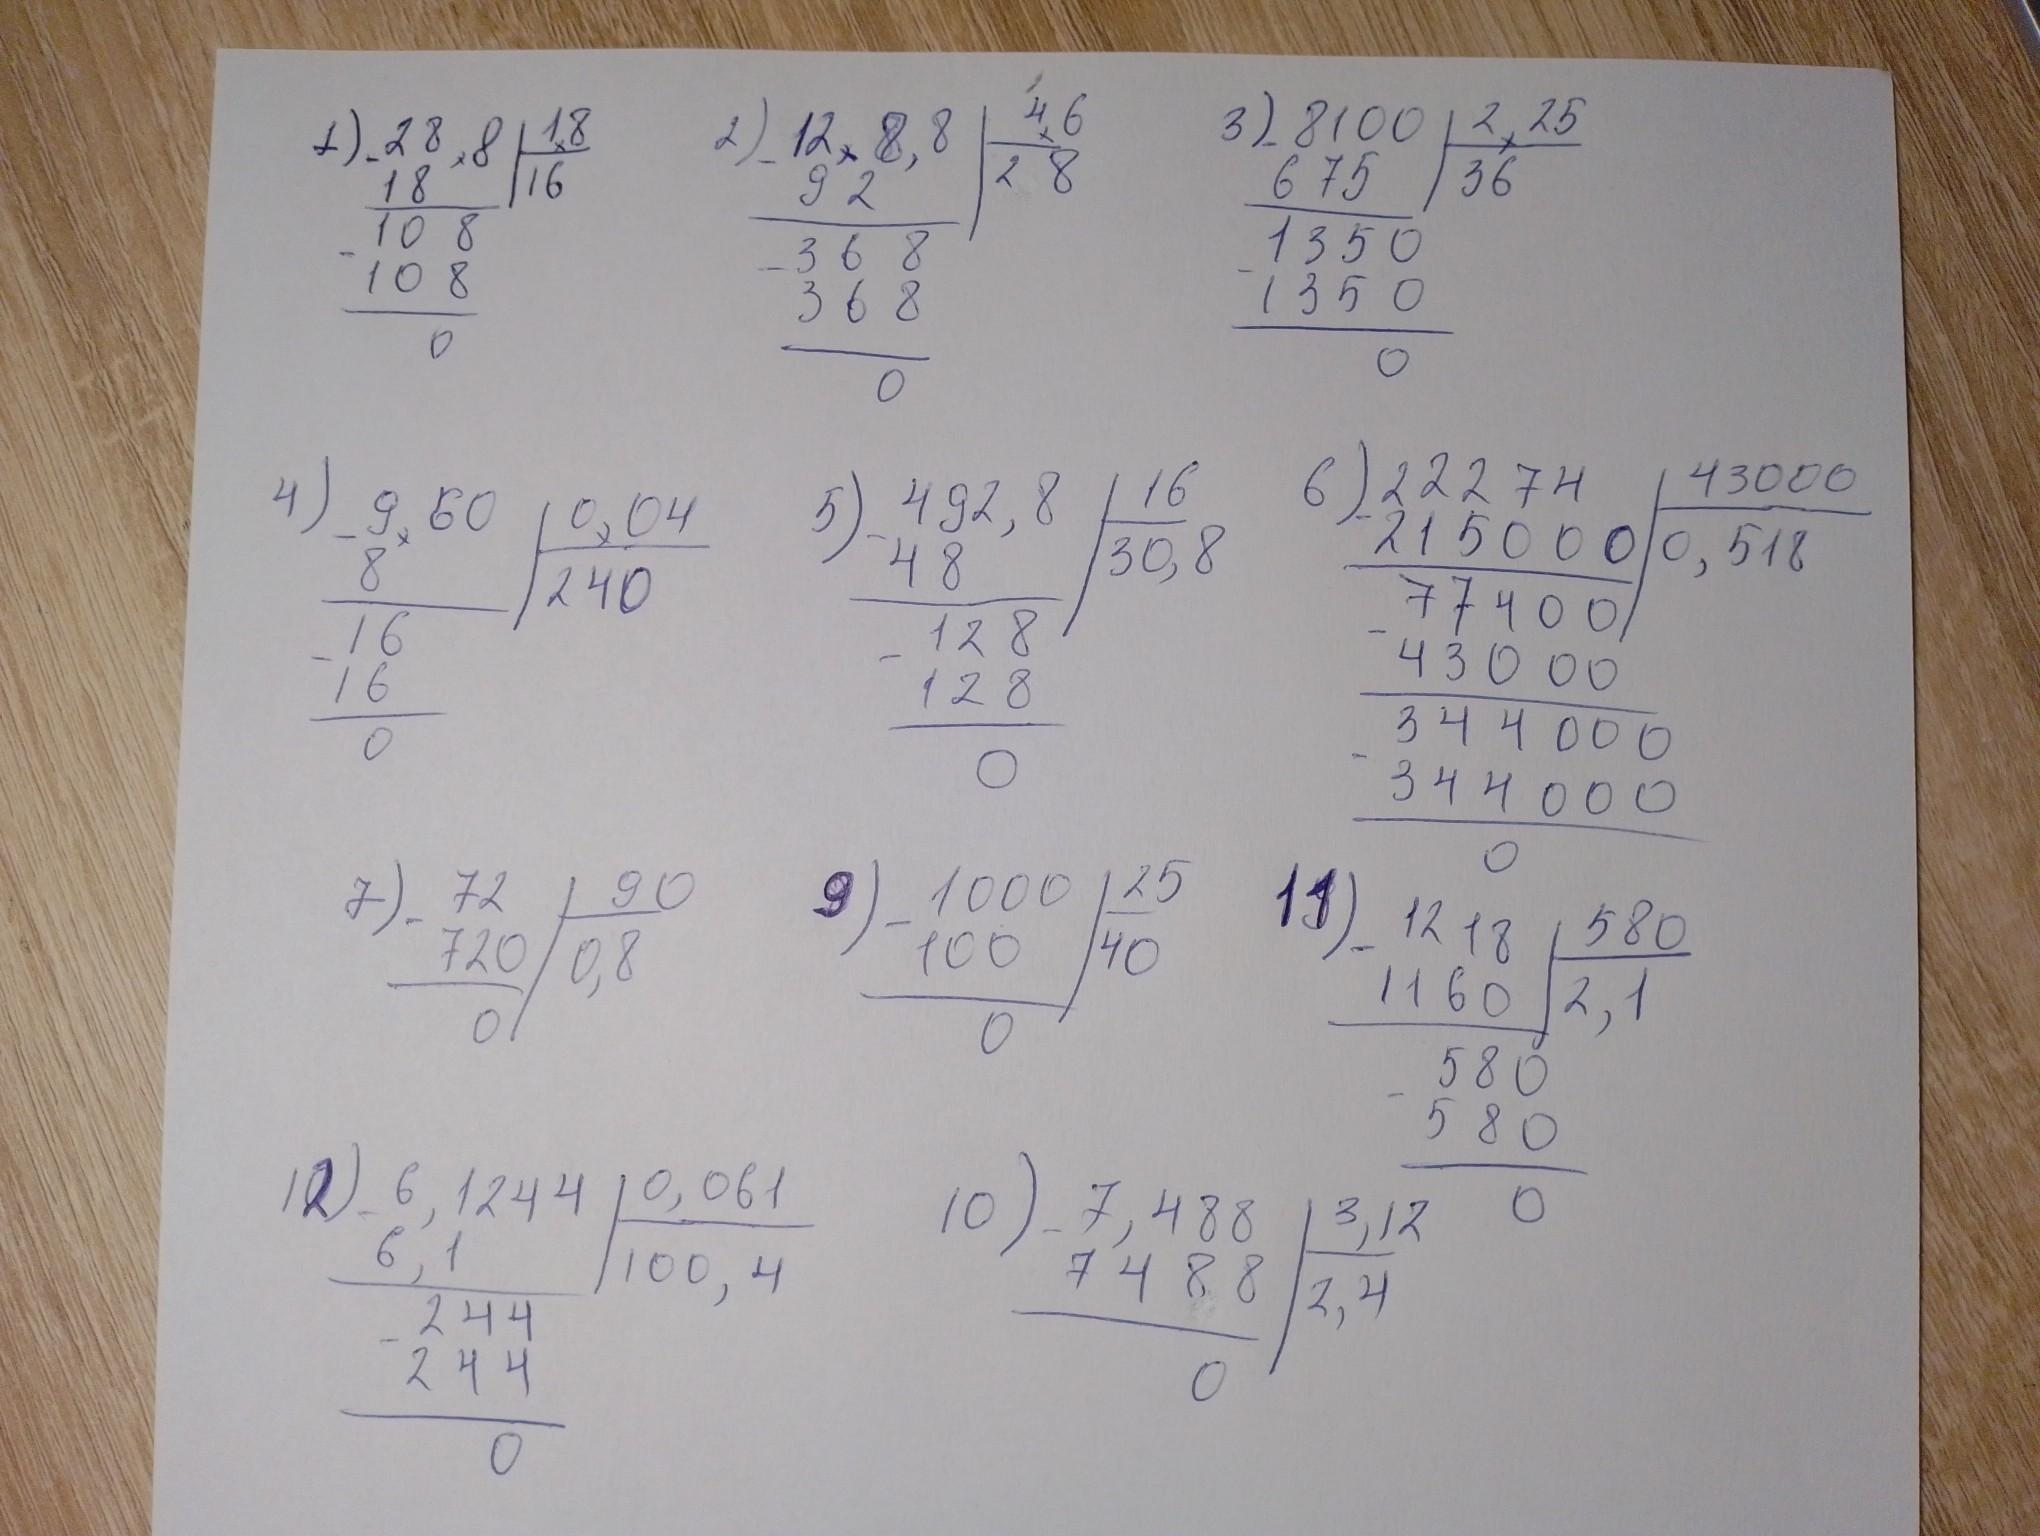 1) - 28,8 | 1,8
18 | 16
- 108
108
0
2) - 12,8,8 | 4,6
92 | 28
- 368
368
0
3) - 8100 | 2,25
675 | 36
- 1350
1350
0
4) - 9,60 | 0,04
8 | 240
- 16
16
0
5) - 492,8 | 16
48 | 30,8
- 128
128
0
6) - 22274 | 43000
215000 | 0,518
- 77400
43000
- 344000
344000
0
7) - 72 | 90
720 | 0,8
0
9) - 1000 | 25
100 | 40
0
11) - 1218 | 580
1160 | 2,1
- 580
580
0
12) - 6,1244 | 0,061
6,1 | 100,4
- 244
244
0
10) - 7,488 | 3,12
7488 | 2,4
0